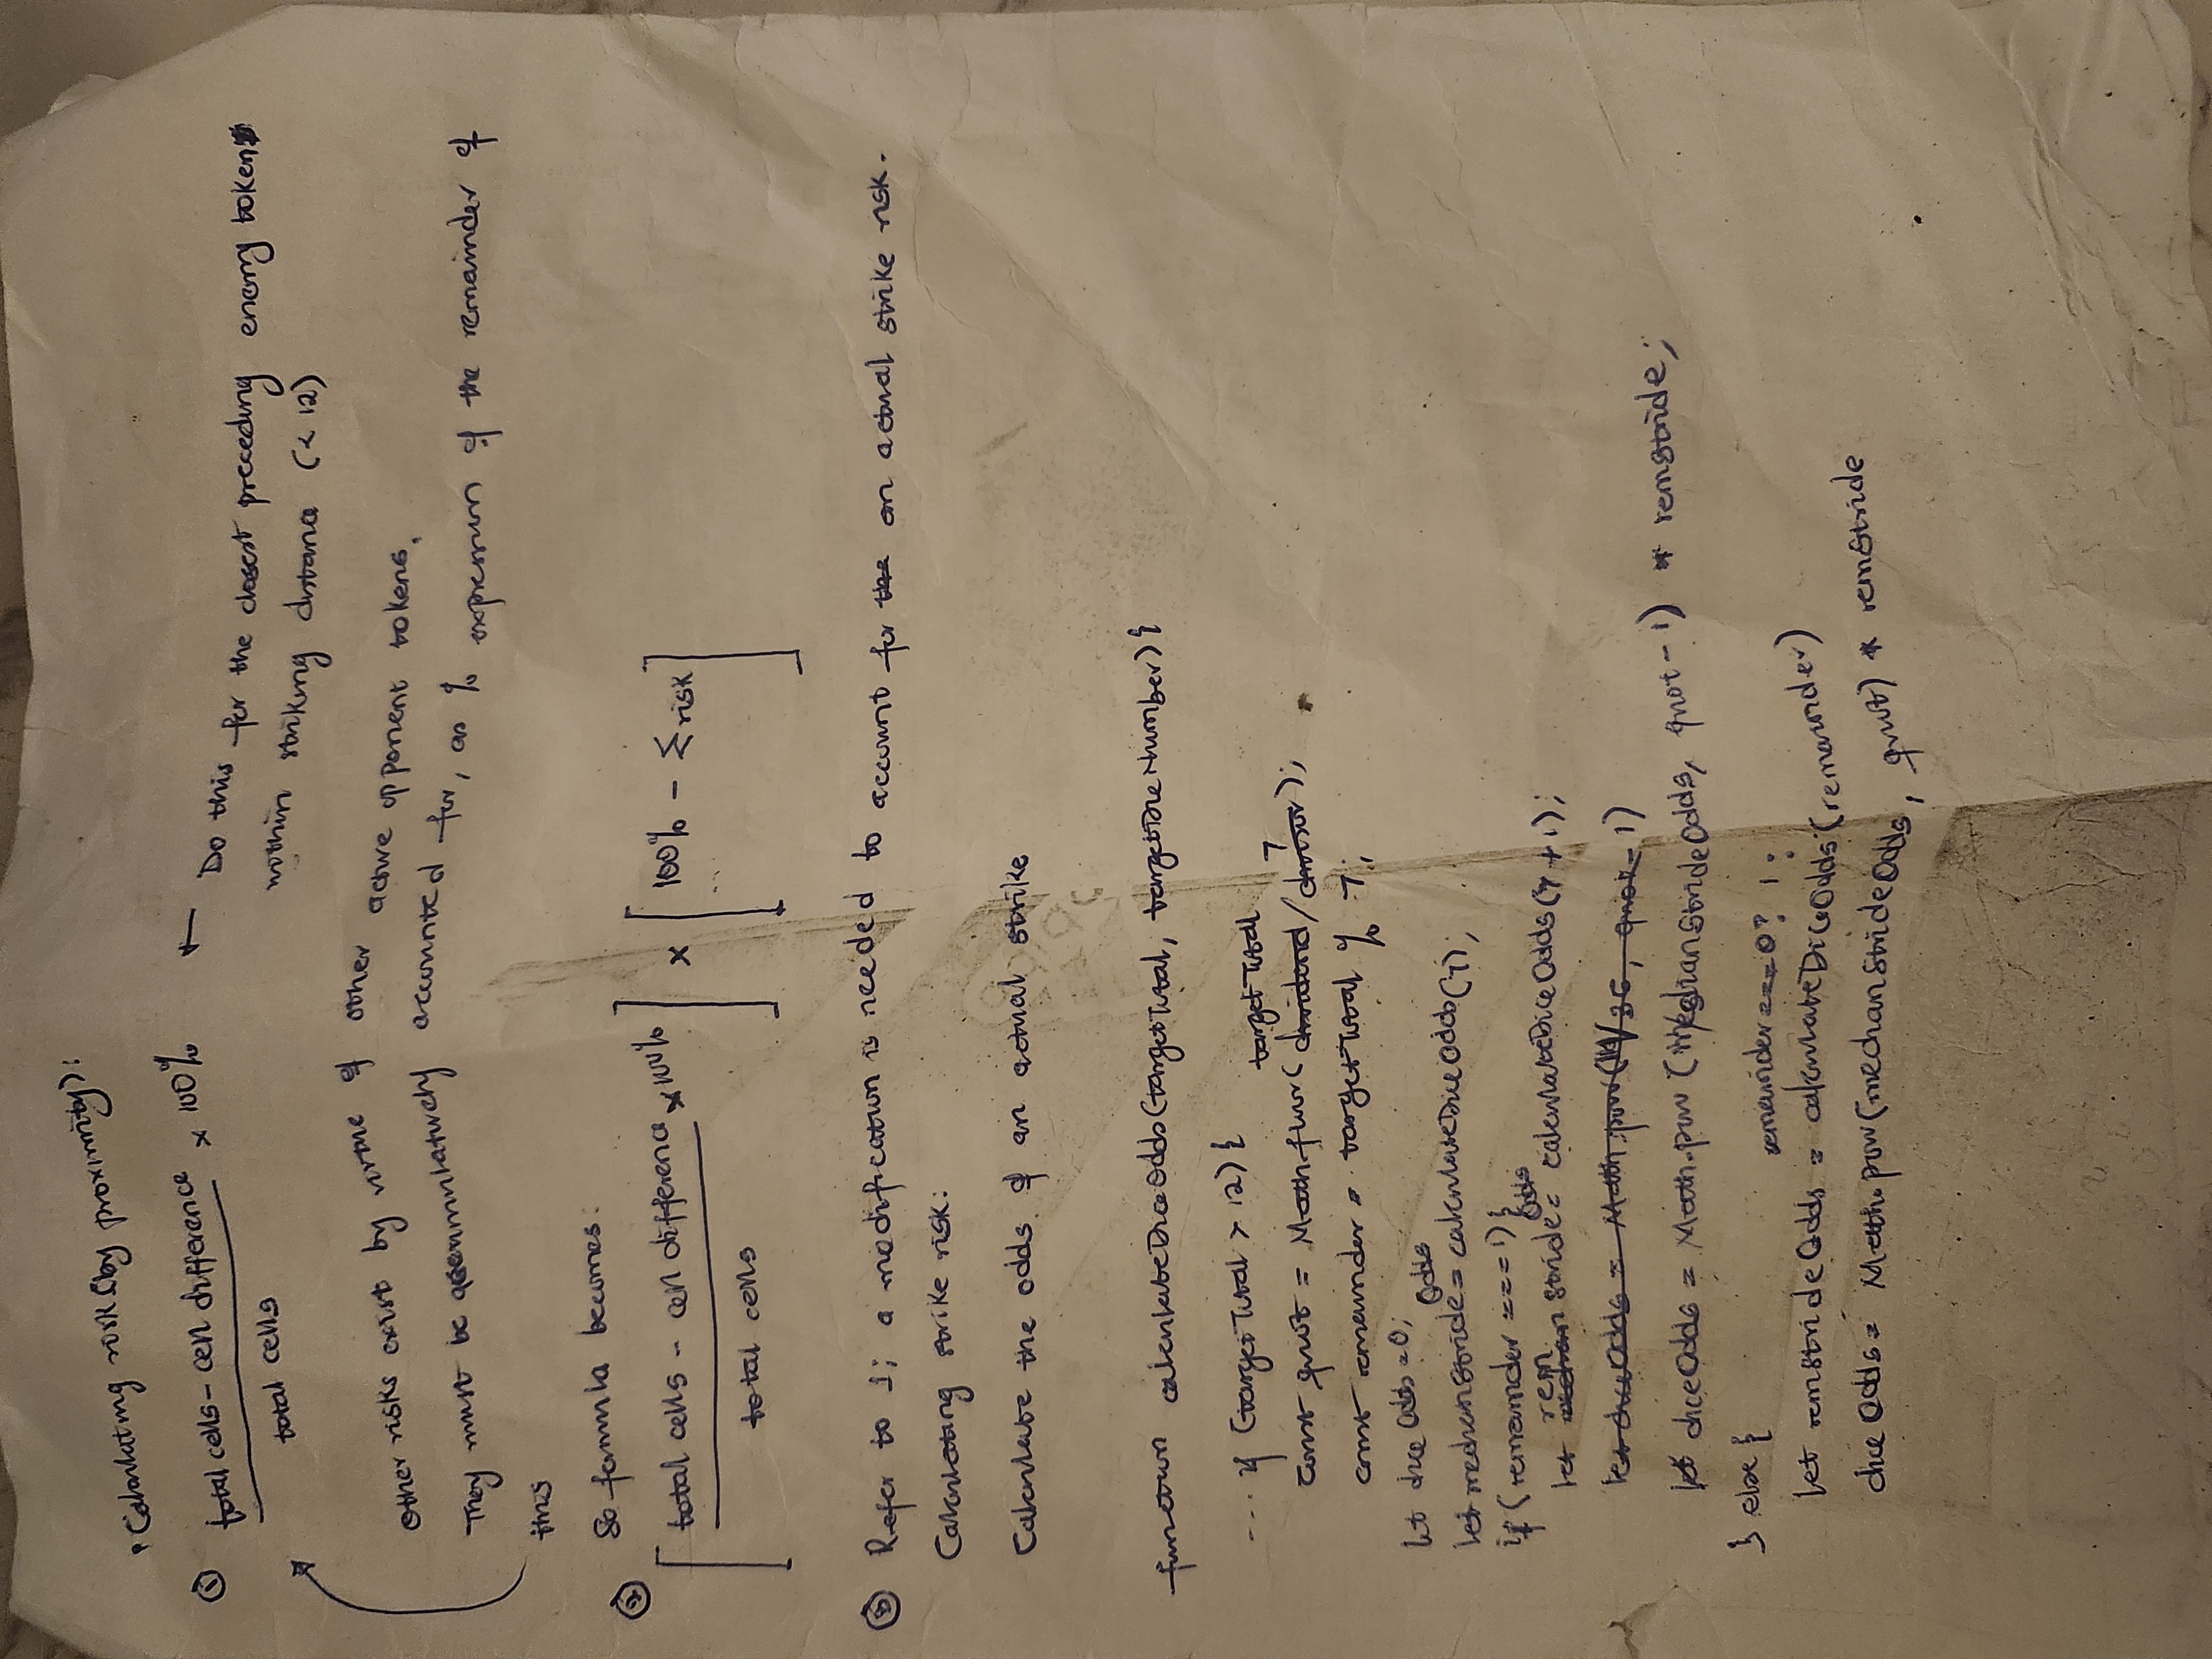 • Calculating risk (by proximity):
① total cells - cell difference × 100%
total cells
← Do this for the closest preceding enemy token
within striking distance (< 12)
Other risks exist by virtue of other active opponent tokens.
They must be accumulatively accounted for, as % expression of the remainder of
this
So formula becomes:
②
[ total cells - cell difference × 100% ] × [ 100% - Σrisk ]
total cells
③ Refer to 1; a modification is needed to account for the an actual strike risk.
Calculating strike risk:
Calculate the odds of an actual strike
function calculateDiceOdds(targetTotal, targetDieNumber){
... if (targetTotal > 12) {
targetTotal 7
const quot = Math.floor( dividend / divisor );
const remainder = targetTotal % 7;
let diceOdds = 0;
Odds
let medianStride = calculateDiceOdds(7);
if (remainder === 1) {
rem Odds
let median stride = calculateDiceOdds(7 + 1);
let diceOdds = Math.pow( /36, quot - 1)
let diceOdds = Math.pow (medianStrideOdds, quot - 1) * remStride;
} else {
remainder === 0? 1 :
let remStrideOdds = calculateDiceOdds(remainder)
diceOdds = Math.pow(medianStrideOdds, quot) * remStride